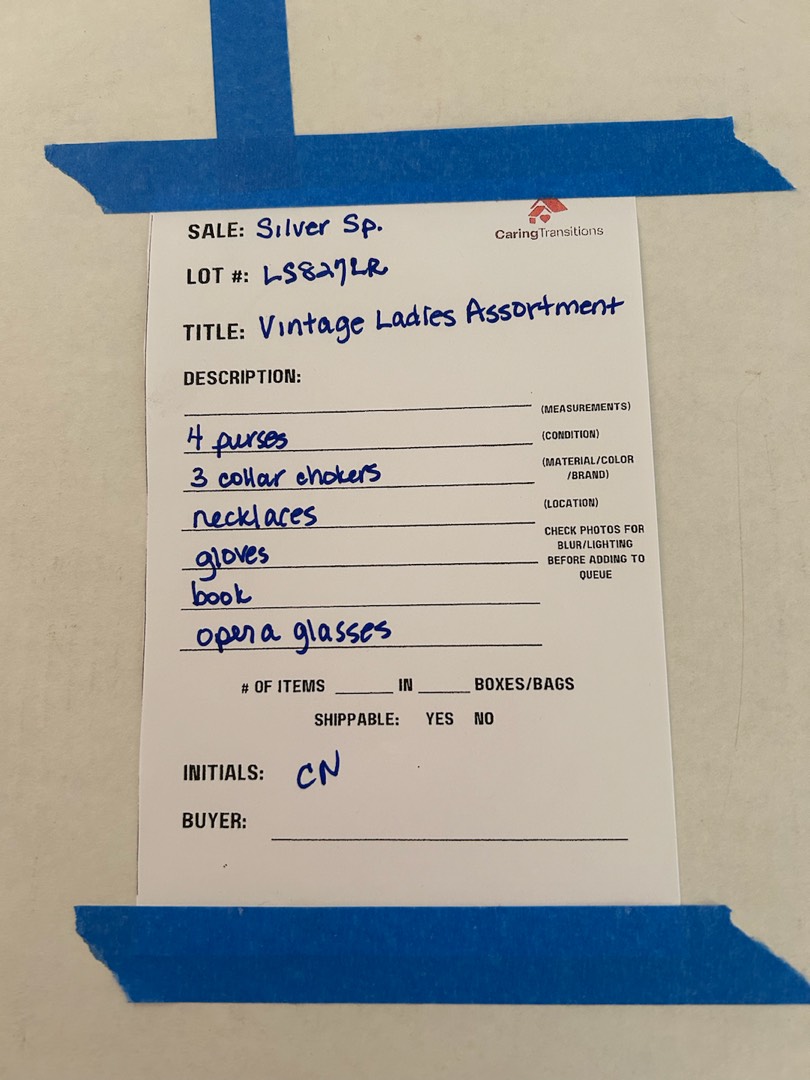 SALE: Silver Sp.
CaringTransitions
LOT #: LS827LR
TITLE: Vintage Ladies Assortment
DESCRIPTION:
(MEASUREMENTS)
4 purses (CONDITION)
3 collar chokers (MATERIAL/COLOR
/BRAND)
necklaces (LOCATION)
gloves
CHECK PHOTOS FOR
BLUR/LIGHTING
BEFORE ADDING TO
QUEUE
book
opera glasses
# OF ITEMS ______ IN ______ BOXES/BAGS
SHIPPABLE: YES NO
INITIALS: CN
BUYER: